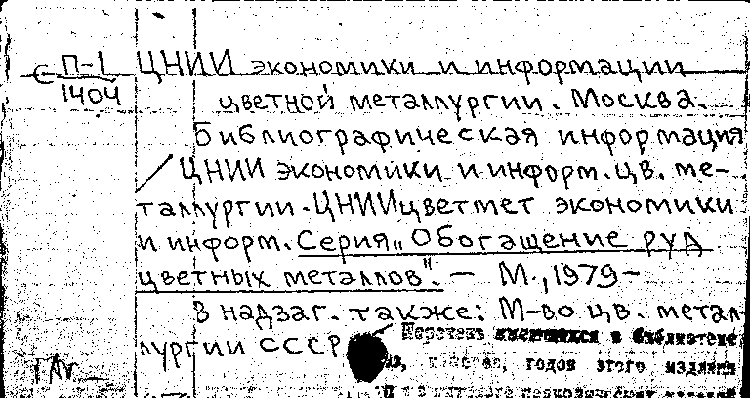 С П-1 ЦНИИ экономики и информации
1404 цветной металлургии. Москва.
Библиографическая информация
ЦНИИ экономики и информ. цв. ме-
таллургии. ЦНИИцветмет экономики
и информ. Серия „Обогащение руд
цветных металлов". — М., 1979 –
В надзаг. также: М-во цв. метал-
лургии СССР
Перечень имеющихся в библиотеке
годов этого издания